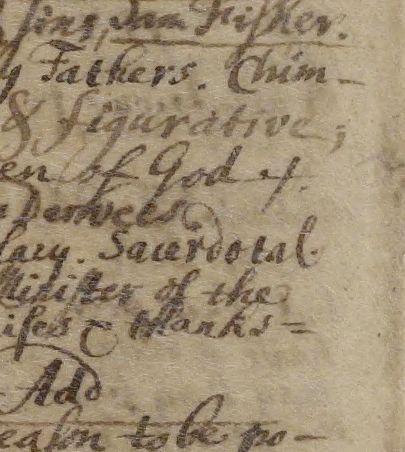 sins, Sam Fisher.
y Fathers. Chim-
& figurative;
en of God
lacy. Sacerdotal
Minister of the
ises & thanks=
Add
eason to be po-